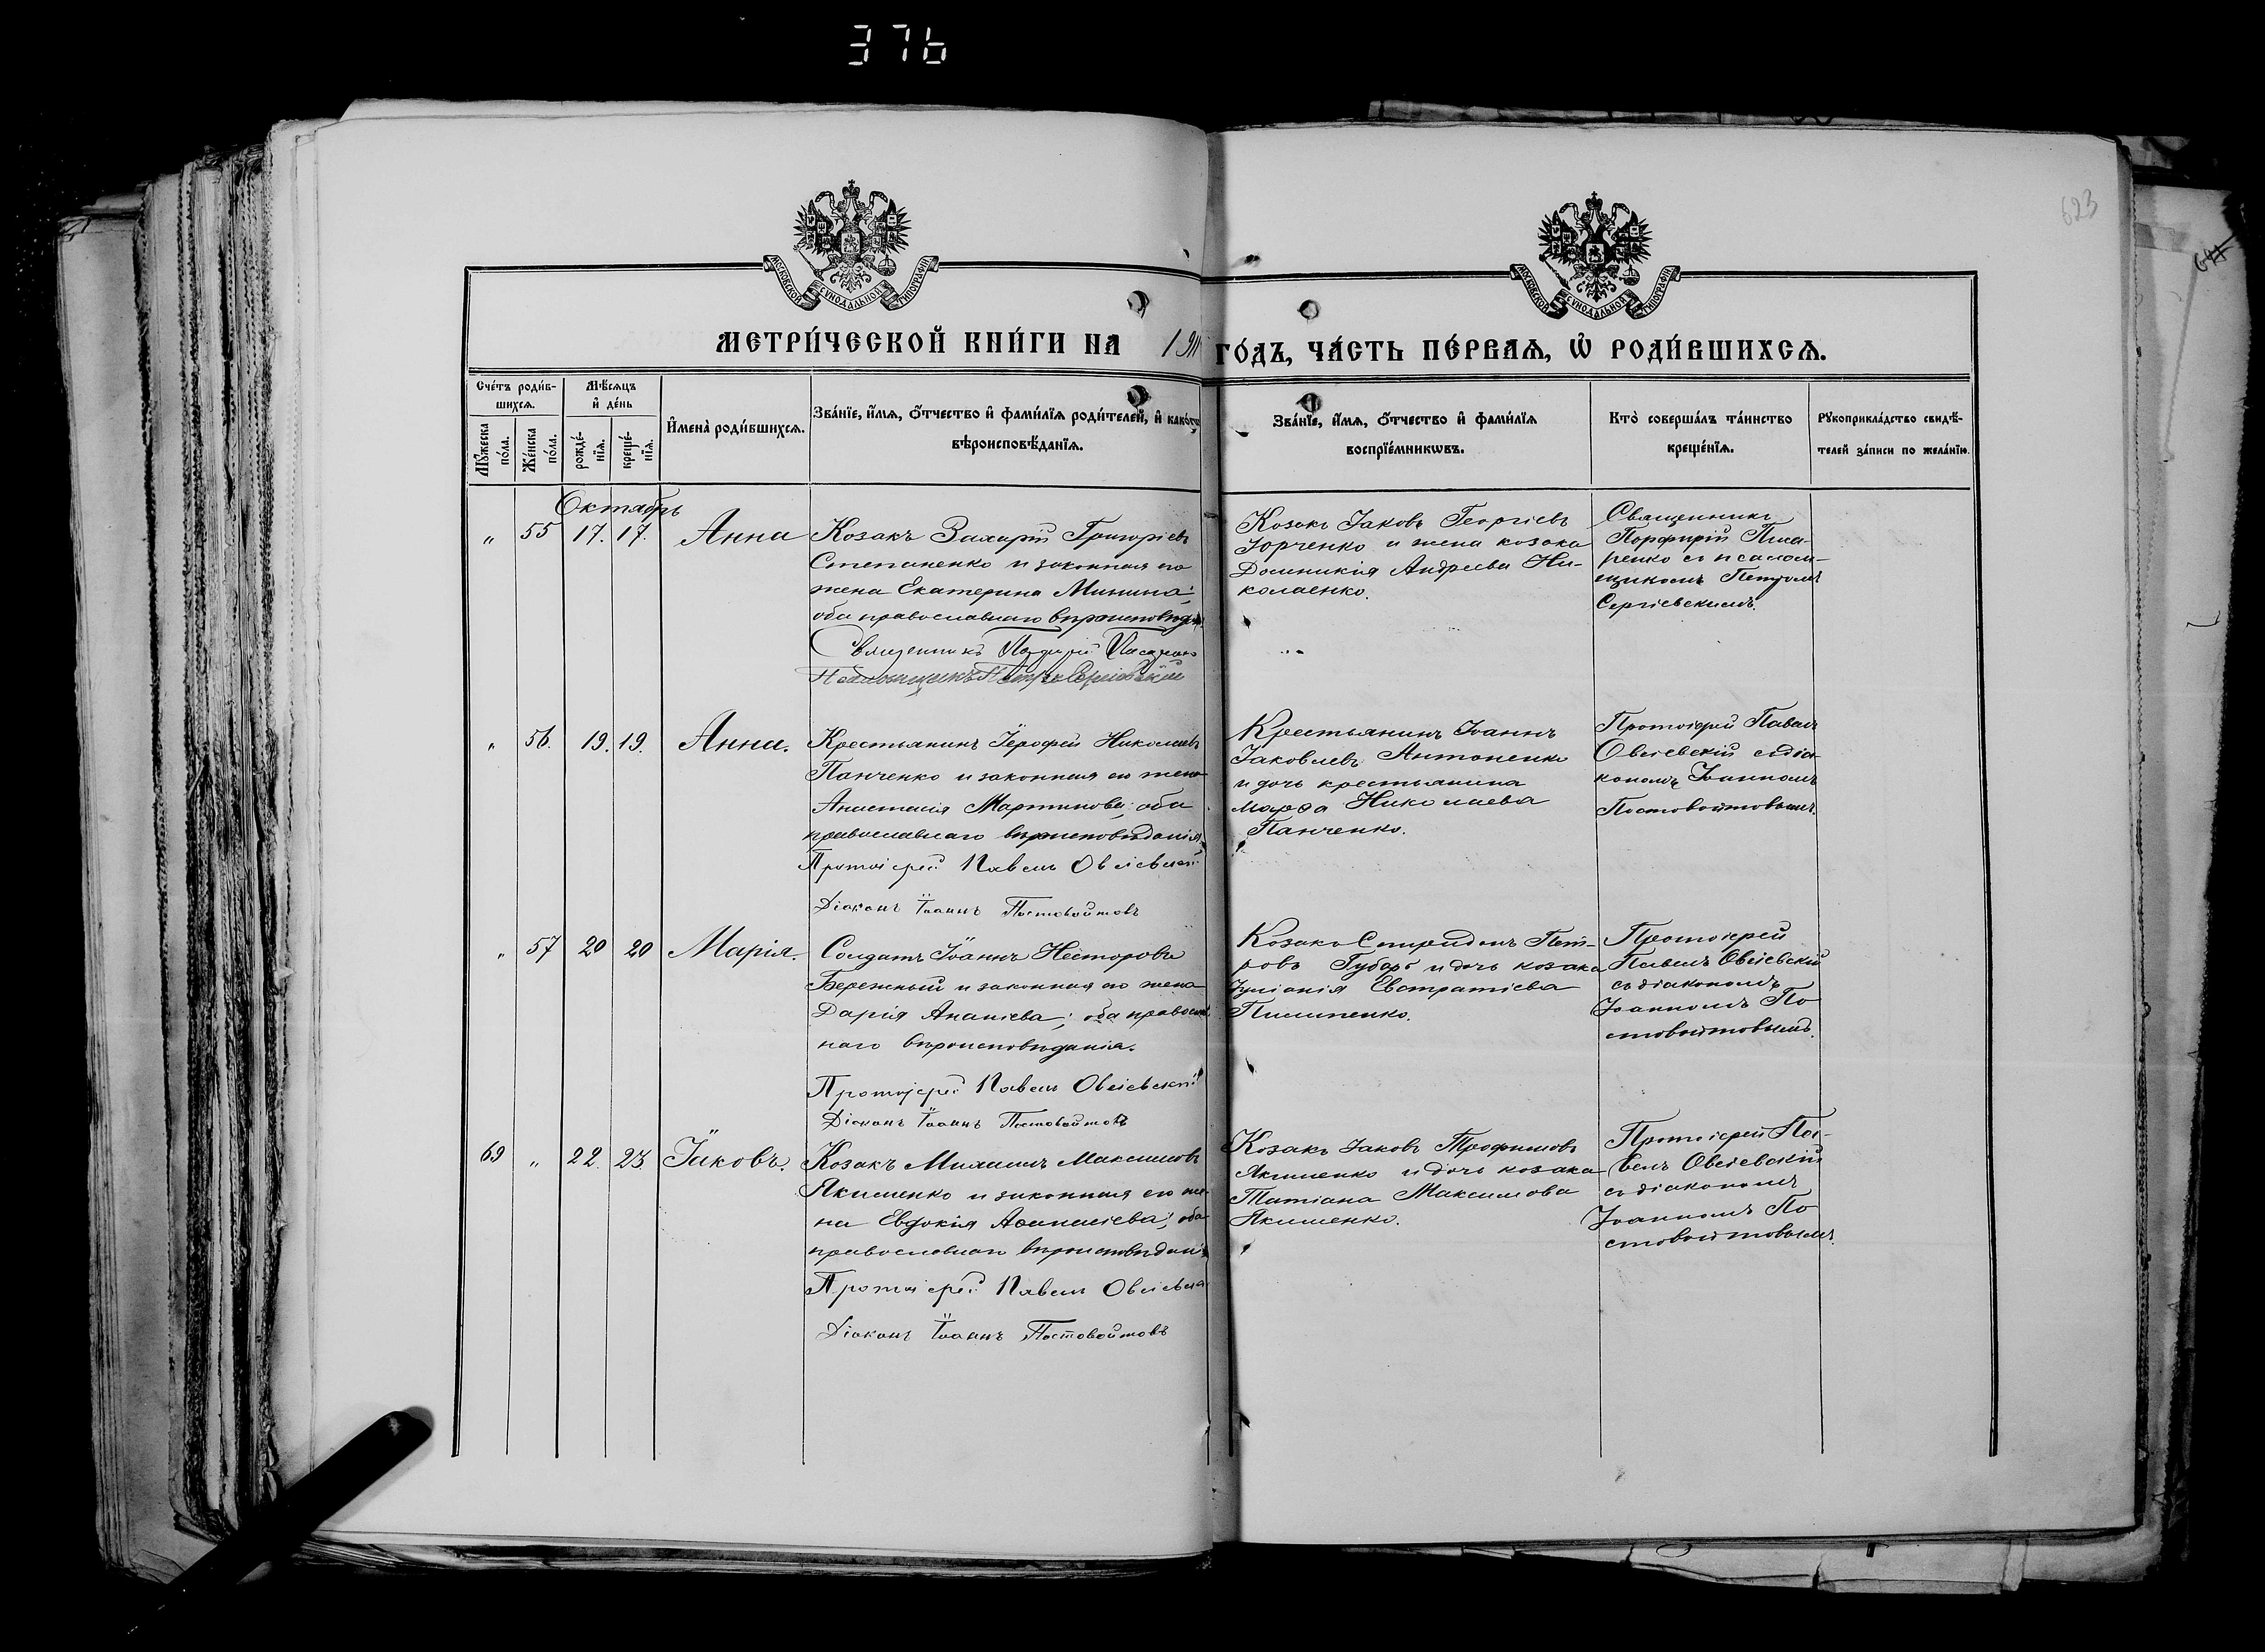 376
623
МОСКОВСКОЙ СѴНОДАЛЬНОЙ ТИПОГРАФІИ
МОСКОВСКОЙ СѴНОДАЛЬНОЙ ТИПОГРАФІИ
МЕТРИ́ЧЕСКОЙ КНИ́ГИ НА 1911 ГО́ДЪ, ЧА́СТЬ ПЕ́РВАЯ, Ѡ҆ РОДИ́ВШИХСЯ.
Сче́тъ роди́в-
шихся.
Мꙋ́жеска по́ла.
Же́нска по́ла.
Мѣ́сяцъ
и҆ де́нь
рожде́-
нїя.
креще́-
нїя.
И҆мена̀ роди́вшихся.
Зва́нїе, и҆́мя, ѻ҆́тчество и҆ фами́лїя роди́телей, и҆ како́гѡ
вѣроисповѣ́данїя.
Зва́нїе, и҆́мя, ѻ҆́тчество и҆ фами́лїя
воспрїе́мникѡвъ.
Кто̀ соверша́лъ та́инство
креще́нїя.
Рꙋкоприкла́дство свидѣ́-
телей за́писи по жела́нїю.
Октябрь
" 55 17. 17. Анна
Козакъ Захарій Григоріевъ
Степаненко и законная его
жена Екатерина Минина;
оба православнаго вѣроисповѣд.
Священникъ Порфирій Писаренко
Псаломщикъ Петръ Сергіевскій
Козакъ Іаковъ Георгіевъ
Юрченко и жена козака
Домникія Андреева Ни-
колаенко.
Священникъ
Порфирій Писа-
ренко съ псалом-
щикомъ Петромъ
Сергіевскимъ.
" 56. 19. 19. Анна.
Крестьянинъ Іерофей Николаевъ
Панченко и законная его жена
Анастасія Мартинова; оба
православнаго вѣроисповѣданія.
Протоіерей Павелъ Овсіевскій
Діаконъ Іоаннъ Постовойтовъ
Крестьянинъ Іоаннъ
Іаковлевъ Антоненко
и дочь крестьянина
Марѳа Николаева
Панченко.
Протоіерей Павелъ
Овсіевскій съ діа-
кономъ Іоанномъ
Постовойтовымъ.
" 57 20 20 Марія.
Солдатъ Іоаннъ Несторовъ
Бережный и законная его жена
Дарія Ананіева; оба православ-
наго вѣроисповѣданія.
Протоіерей Павелъ Овсіевскій
Діаконъ Іоаннъ Постовойтовъ
Козакъ Спиридонъ Пет-
ровъ Губарь и дочь козака
Іуліанія Евстратіева
Пилипенко.
Протоіерей
Павелъ Овсіевскій
съ діакономъ
Іоанномъ По
стовойтовымъ.
69 " 22. 23. Іаковъ.
Козакъ Михаилъ Максимовъ
Якименко и законная его же-
на Евдокія Аѳанасіева; оба
православнаго вѣроисповѣдан
Протоіерей Павелъ Овсіевскі
Діаконъ Іоаннъ Постовойтовъ
Козакъ Іаковъ Трофимовъ
Якименко и дочь козака
Татіана Максимова
Якименко.
Протоіерей Па-
велъ Овсіевскій
съ діакономъ
Іоанномъ По
стовойтовымъ.